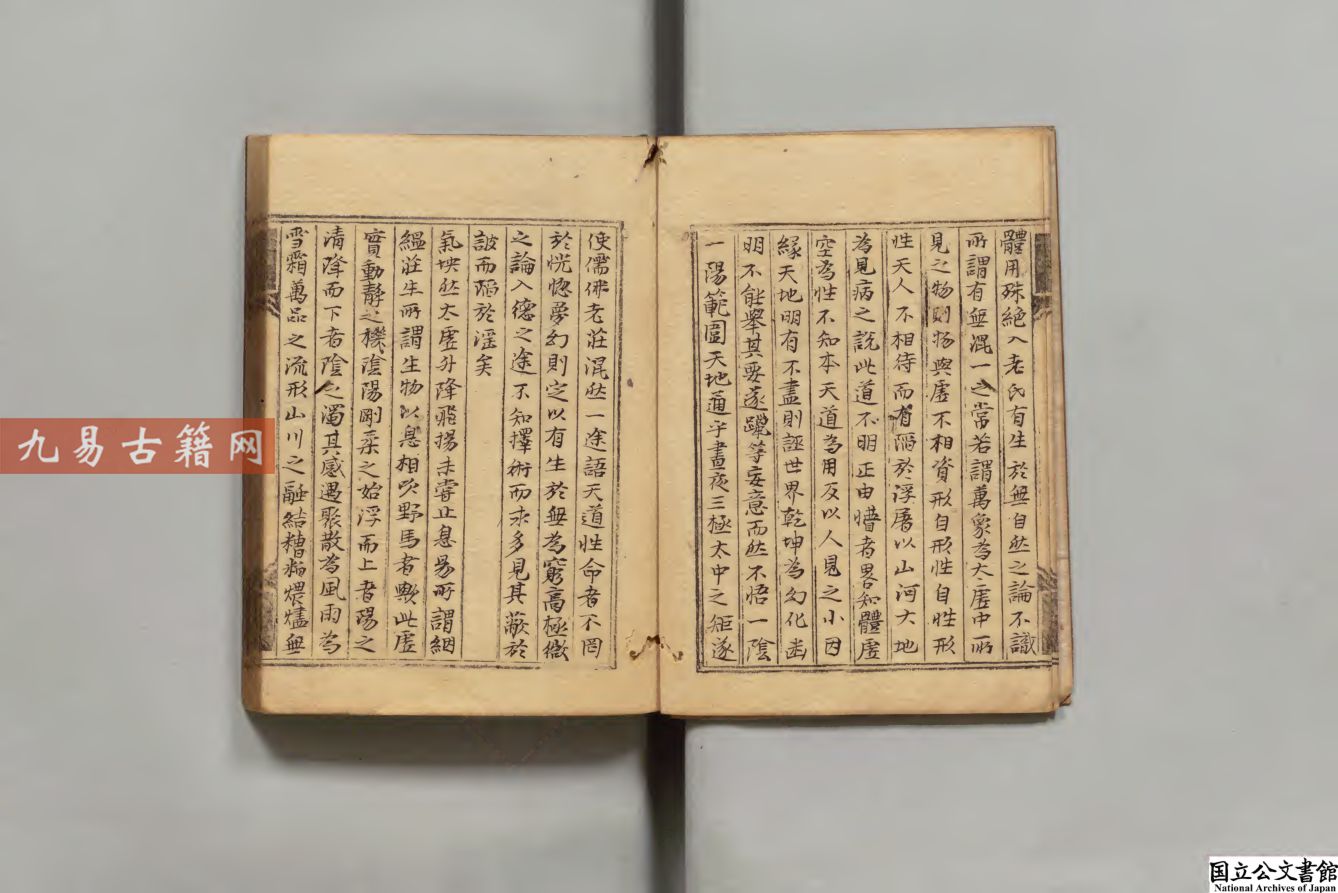 體用殊絕入老氏有生於無自然之論不識
所謂有無混一之常若謂萬象為太虛中所
見之物則物與虛不相資形自形性自性形
性天人不相待而有陷於浮屠以山河大地
為見病之說此道不明正由懵者畧知體虛
空為性不知本天道為用反以人見之小因
緣天地明有不盡則誣世界乾坤為幻化幽
明不能舉其要遂躐等妄意而然不悟一陰
一陽範圍天地通乎晝夜三極大中之矩遂
使儒佛老莊混然一途語天道性命者不罔
於恍惚夢幻則定以有生於無為窮高極微
之論入德之途不知擇術而求多見其蔽於
詖而陷於淫矣
氣坱然太虛升降飛揚未嘗止息易所謂絪
縕莊生所謂生物以息相吹野馬者歟此虛
實動靜之機陰陽剛柔之始浮而上者陽之
清降而下者陰之濁其感遇聚散為風雨為
雪霜萬品之流形山川之融結糟粕煨燼無
九易古籍网
国立公文書館
National Archives of Japan